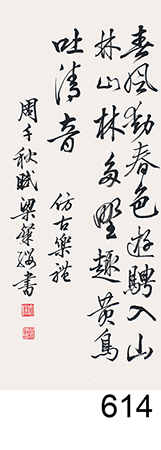 春風動春色遊騁入山
林山林多野趣黃鳥
吐清音
仿古樂禮
周千秋賦梁粲纓書
614